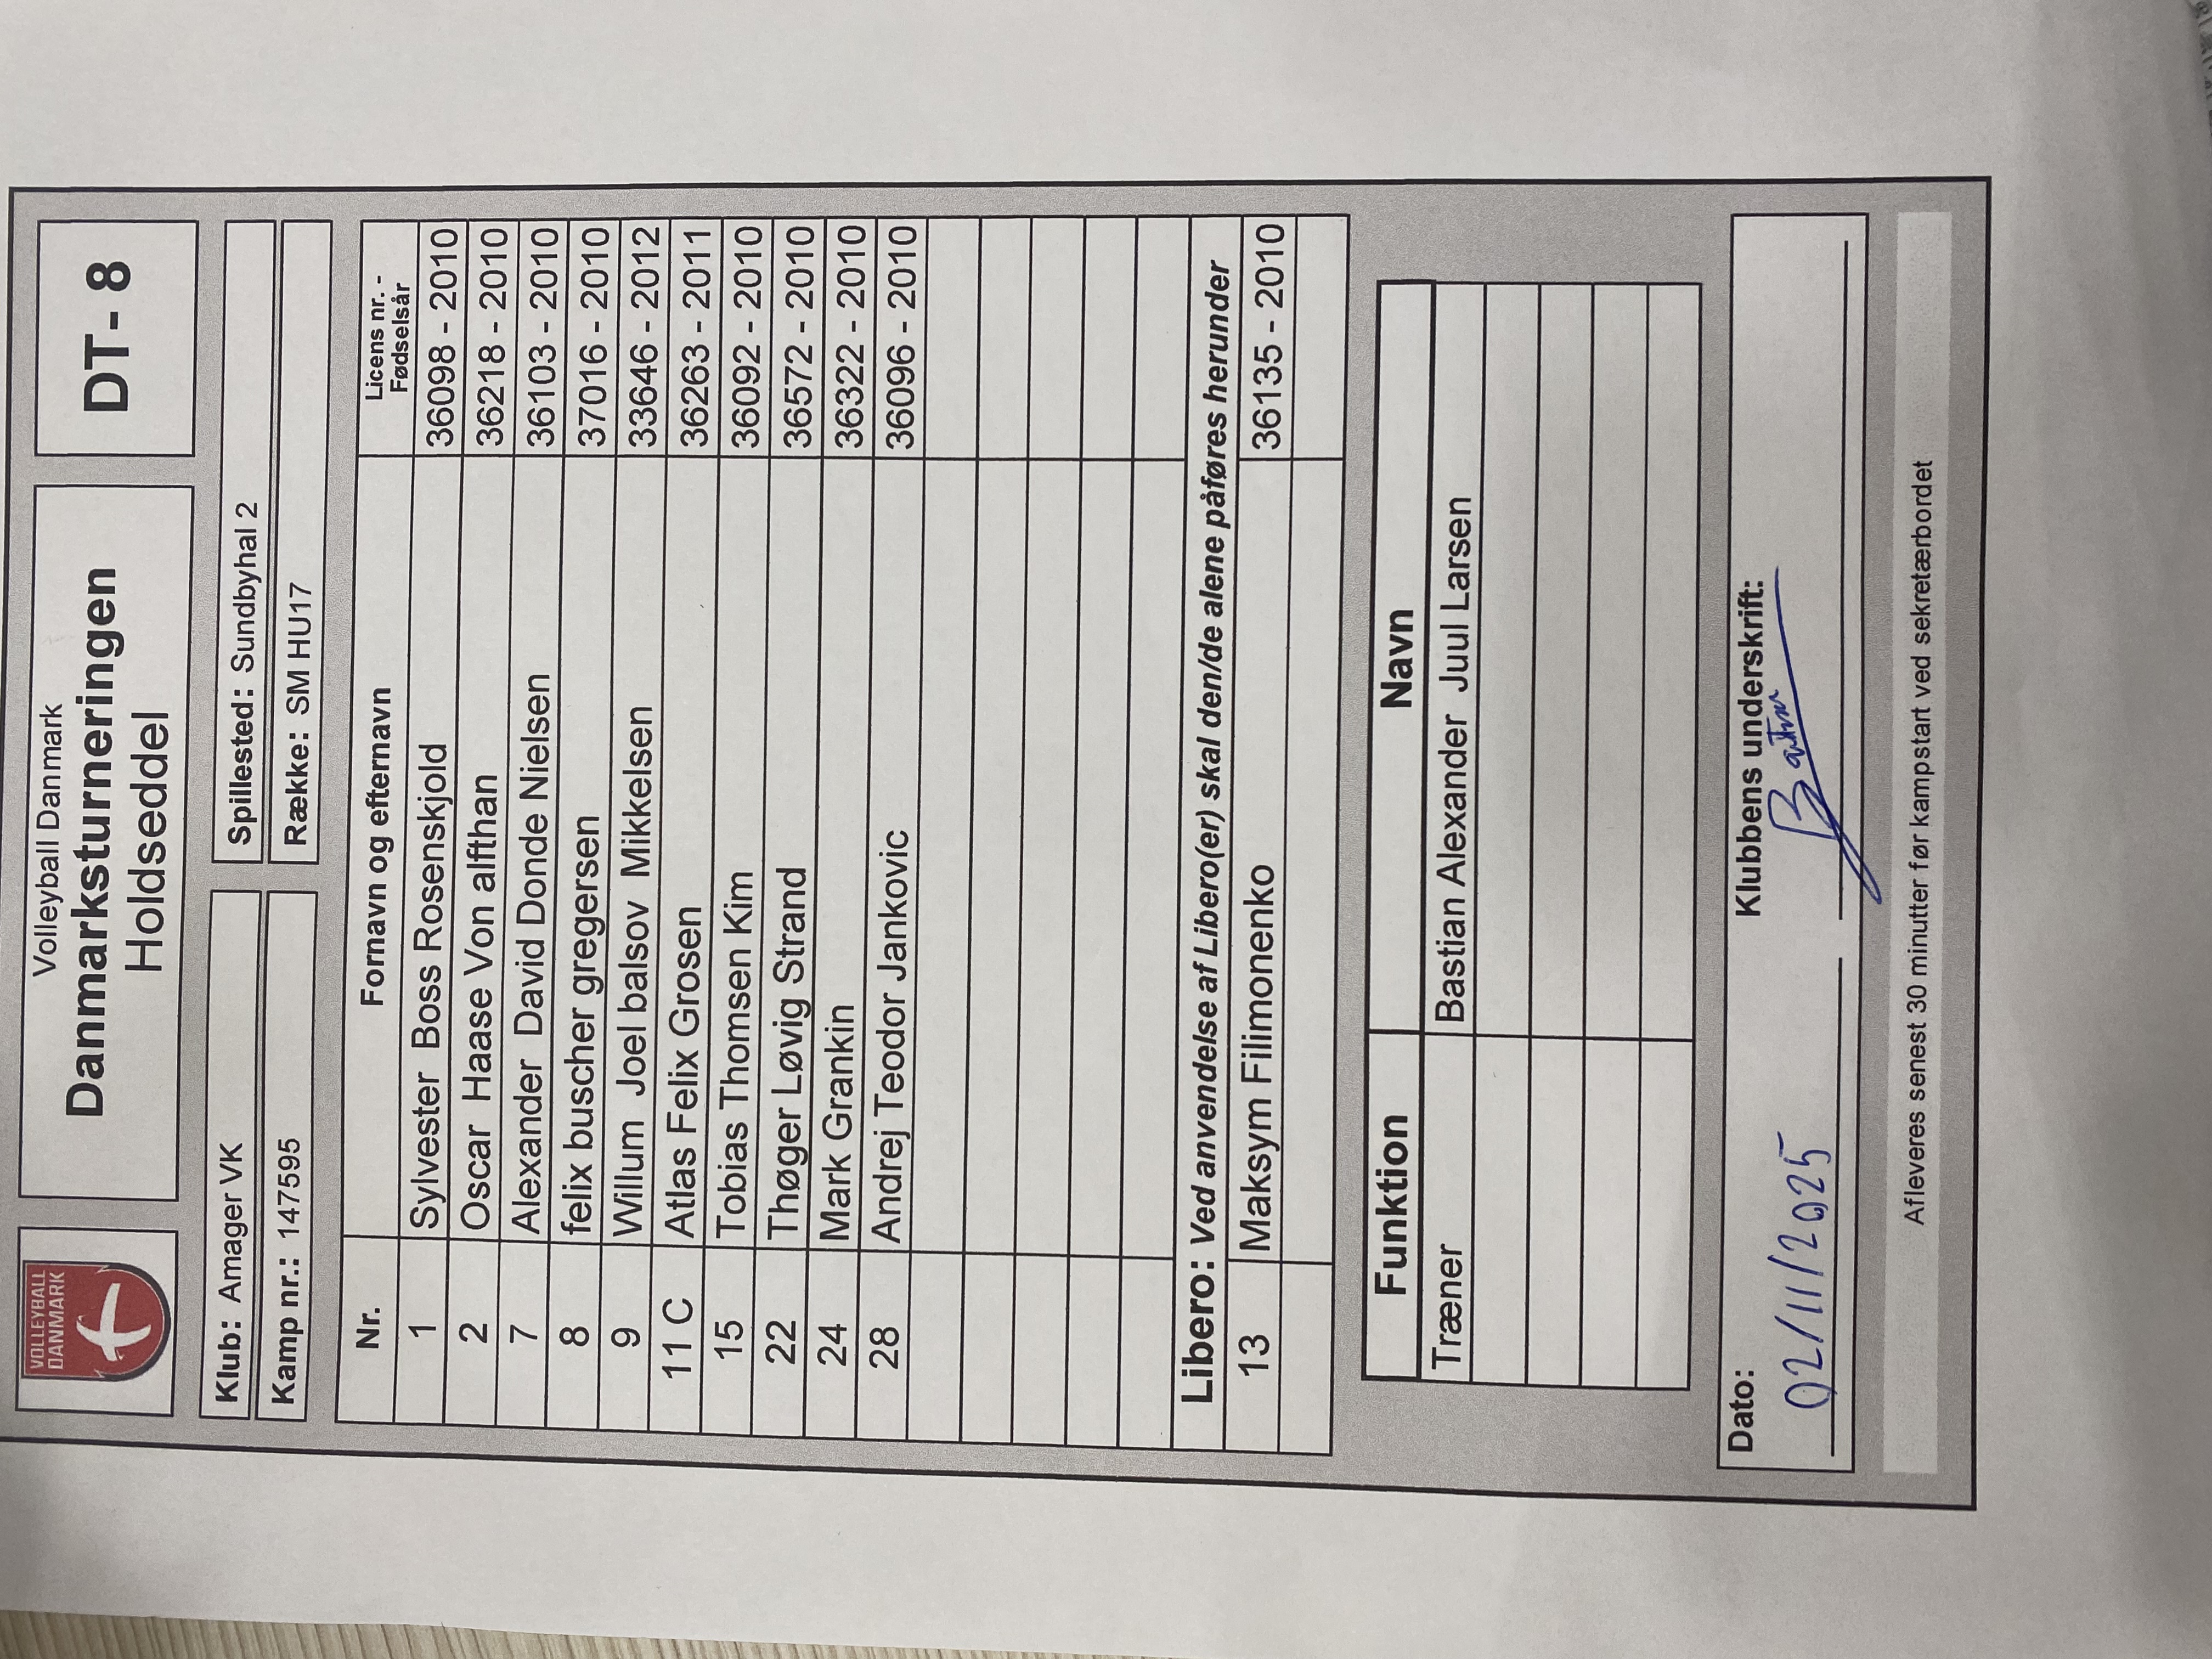 VOLLEYBALL
DANMARK
Volleyball Danmark
Danmarksturneringen
Holdseddel
DT- 8
Klub: Amager VK
Spillested: Sundbyhal 2
Kamp nr.: 147595
Række: SM HU17
Nr. Fornavn og efternavn Licens nr. - Fødselsår
1 Sylvester Boss Rosenskjold 36098 - 2010
2 Oscar Haase Von alfthan 36218 - 2010
7 Alexander David Donde Nielsen 36103 - 2010
8 felix buscher gregersen 37016 - 2010
9 Willum Joel balsov Mikkelsen 33646 - 2012
11 C Atlas Felix Grosen 36263 - 2011
15 Tobias Thomsen Kim 36092 - 2010
22 Thøger Løvig Strand 36572 - 2010
24 Mark Grankin 36322 - 2010
28 Andrej Teodor Jankovic 36096 - 2010
Libero: Ved anvendelse af Libero(er) skal den/de alene påføres herunder
13 Maksym Filimonenko 36135 - 2010
Funktion Navn
Træner Bastian Alexander Juul Larsen
Dato: Klubbens underskrift:
02/11/2025
Afleveres senest 30 minutter før kampstart ved sekretærbordet